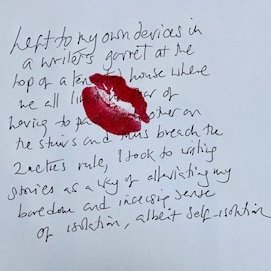 Left to my own devices in
a writer's garret at the
top of a house where
we all of
having to on
the stairs and thus breach the
2 metres rule, I took to writing
stories as a way of alleviating my
boredom and increasing sense
of isolation, albeit self-isolation